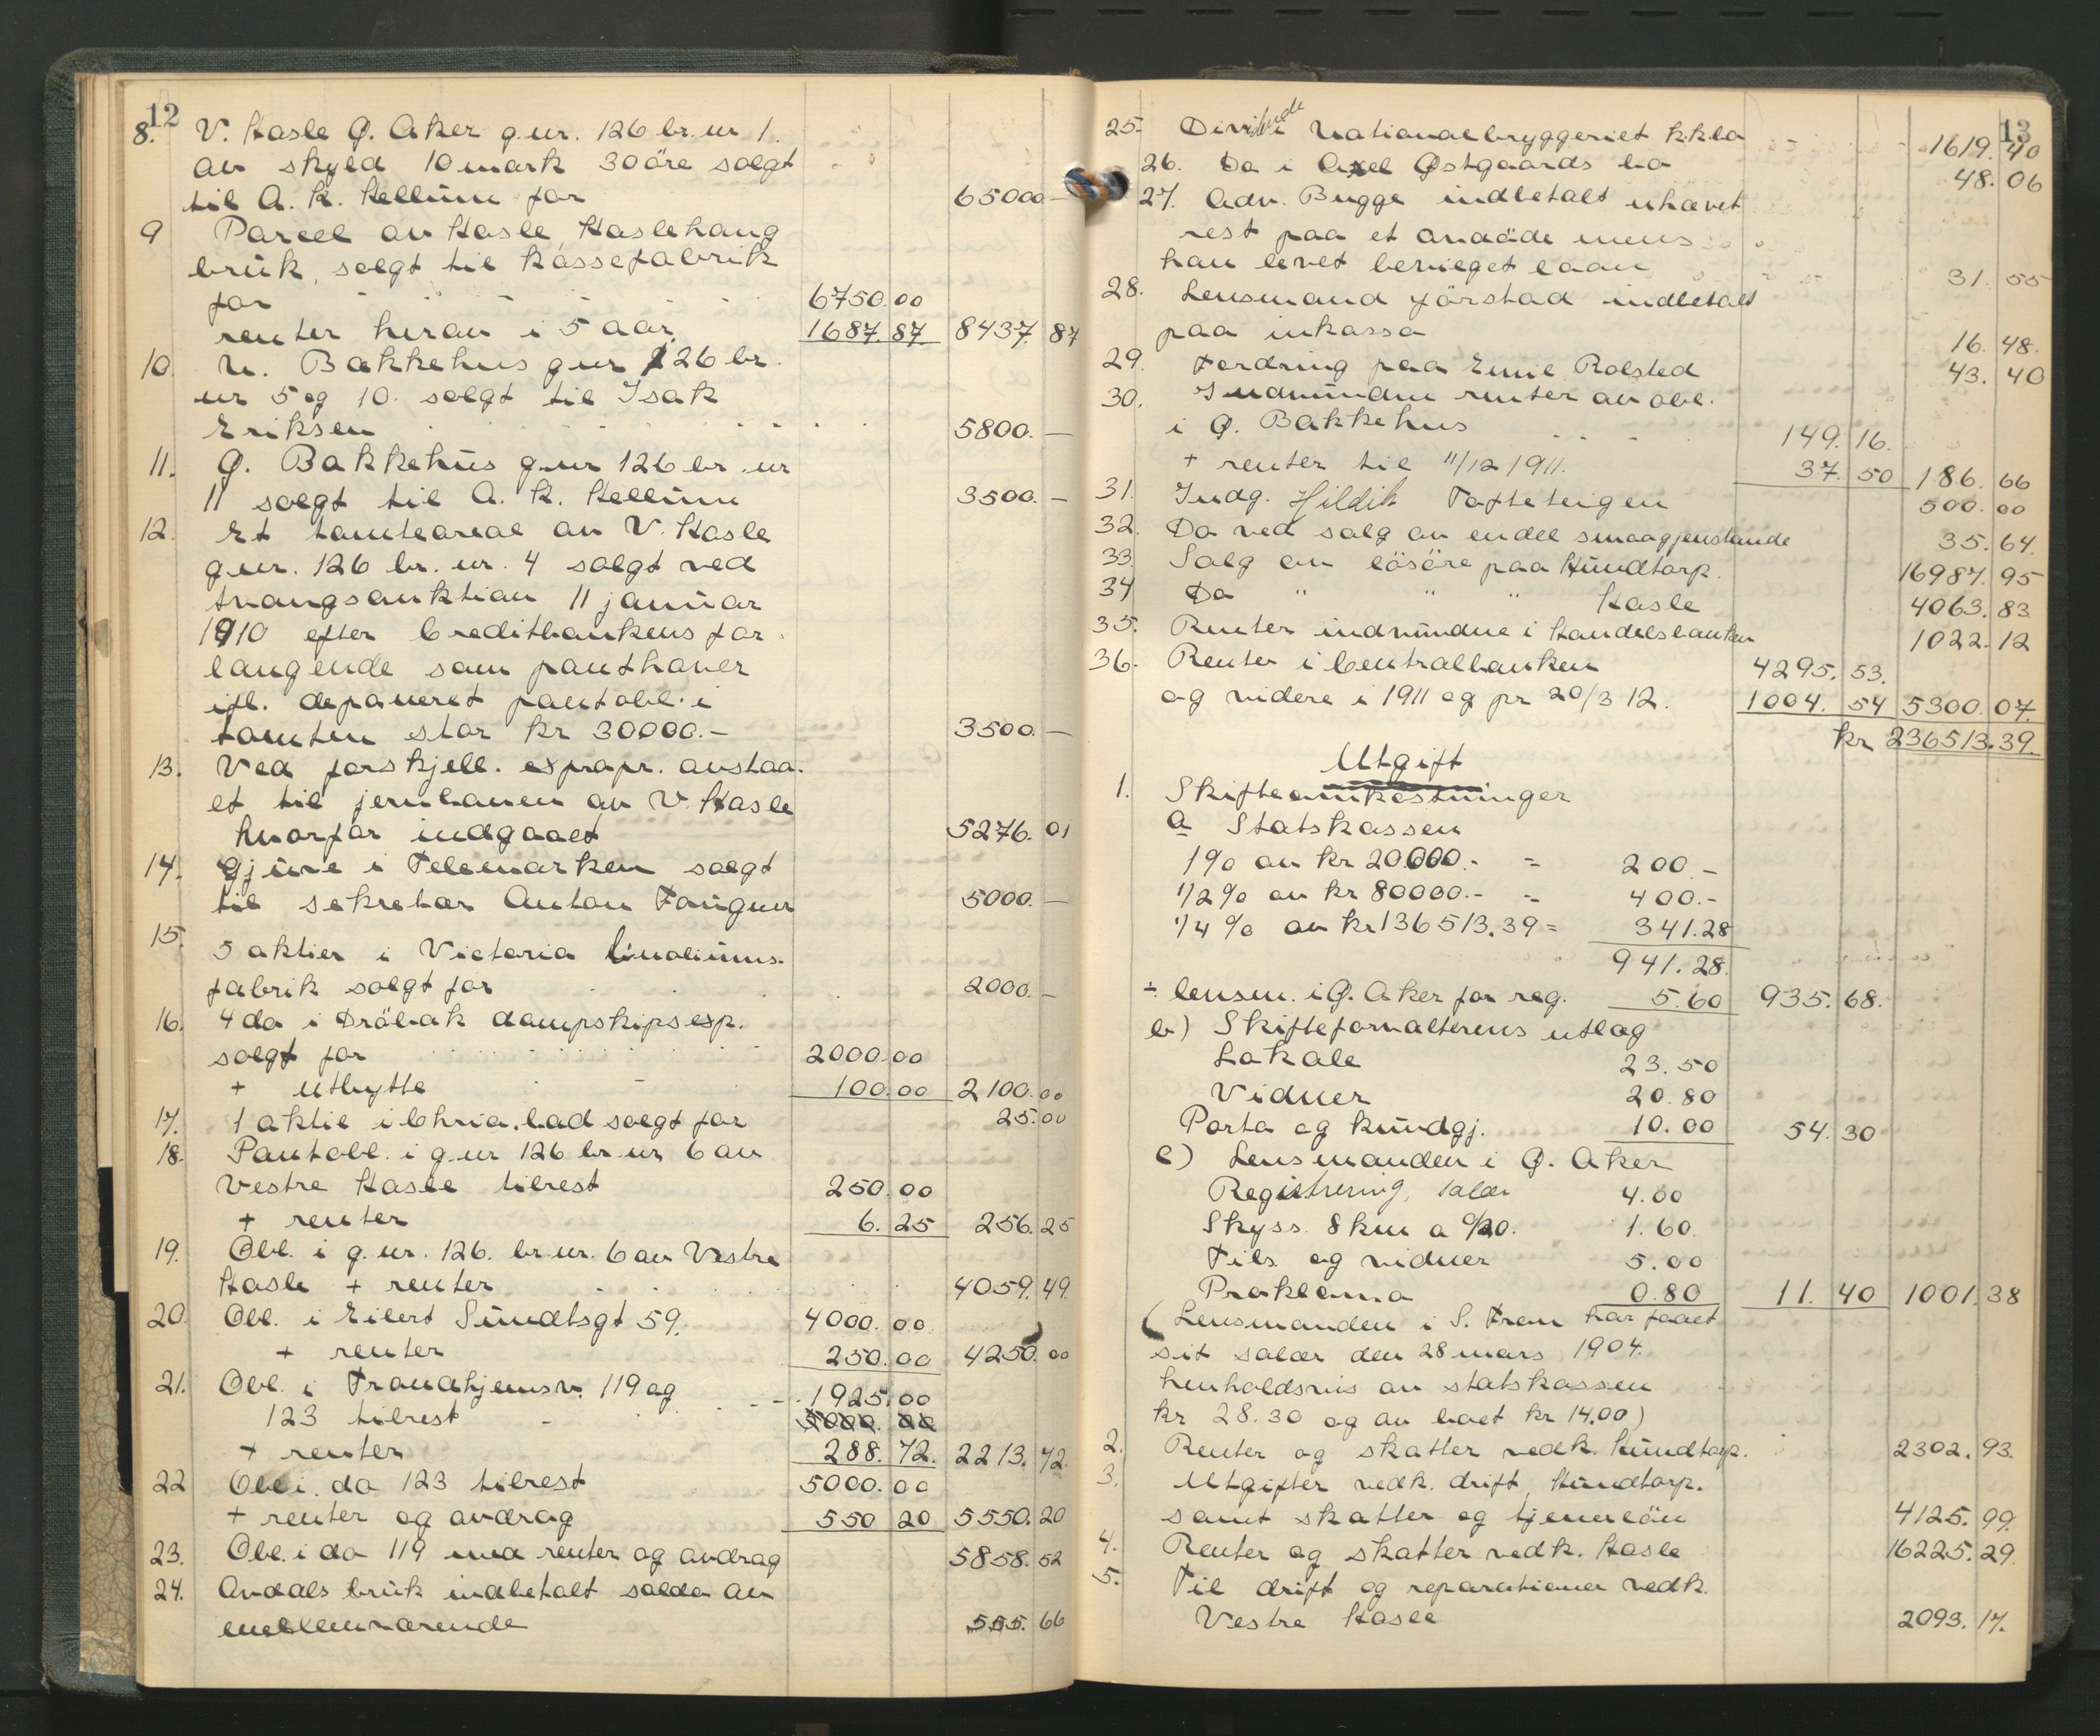 12
8. V. Hasle Ø. Aker g.nr. 126 br.nr 1.
av skyld 10 mark 30 öre solgt
til A. K. Hellum for 65000.—
9 Parcel av Hasle, Haslehaug
bruk, solgt til kassefabrik
for 6750.00
renter herav i 5 aar. 1687.87 8437.87
10. N. Bakkehus gnr 126 br.
nr 5 og 10. solgt til Isak
Eriksen 5800.—
11. Ø. Bakkehus g.nr 126 br nr
11 solgt til A. K. Hellum 3500.—
12. Et tomteareal av V. Hasle
g.nr. 126 br. nr. 4 solgt ved
tvangsauktion 11 januar
1910 efter Creditbankens for-
langende som panthaver
ifl. deponert pantobl. i
tomten stor kr 30000.— 3500.—
13. Ved forskjell. expropr. avstaa-
et til jernbanen av V. Hasle
hvorfor indgaaet 5276.01
14. Gjuve i Telemarken solgt
til sekretær Anton 5000.—
15. 5 aktier i Victoria Linoliums-
fabrik solgt for 2000.—
16. 4 do i Dröbak dampskipsexp.
solgt for 2000.00
+ utbytte 100.00 2100.00
17. 1 aktie i Chria. bad solgt for 25.00
18. Pantobl. i g.nr 126 br.nr 6 av
Vestre Hasle tilrest 250.00
+ renter 6.25 256.25
19. Obl. i g.nr. 126. br.nr. 6 av Vestre
Hasle + renter 4059.49
20. Obl. i Eilert Sundtsgt 59. 4000.00
+ renter 250.00 4250.00
21. Obl. i Trondhjemsv. 119 og 1925.00
123 tilrest 5000.00
+ renter 288.72. 2213.72.
22 Obl i. do 123 tilrest 5000.00
+ renter og avdrag 550 20 5550.20
23. Obl. i do 119 med renter og avdrag 5858.52
24. Avdals bruk indbetalt saldo av
mellemværende 555.66
13
25. Dividende i Nationalbryggeriet k.kla 1619.40
26. Do i Axel Østgaards bo 48.06
27. Adv. Bugge indbetalt uhævet
rest paa et avdöde mens
han levet bevilget laan 31.55
28. Lensmand Jörstad indbetalt
paa inkasso 16.48.
29. Fordring paa Emil Rolsted 43.40
30. Indvundne renter av obl.
i Ø. Bakkehus 149.16.
+ renter til 11/12 1911. 37.50 186.66
31. Indg. Hildik Tofteteigen 500.00
32. Do ved salg av endel smaagjenstande 35.64.
33 Salg av lösöre paa Hundtorp. 16987.95
34 Do " " " Hasle 4063.83
35. Renter indvundne i Handelsbanken 1022.12
36. Renter i Centralbanken 4295.53.
og videre i 1911 og pr 20/3 12. 1004.54 5300.07.
kr 236513.39.
Utgift
1. Skifteomkostninger
a Statskassen
1% av kr 20.000.- = 200.—
1/2% av kr 80000.- = 400.—
1/4% av kr 136513.39 = 341.28
941.28.
÷ lensm. i Ø. Aker for reg. 5.60 935.68.
b) Skifteforvalterens utlæg
Lokale 23.50
Vidner 20.80
Porto og kundgj. 10.00 54.30
c) Lensmanden i Ø. Aker
Registrering, salær 4.00
Skyss. 8 km a 0/20. 1.60.
Tils. og vidner 5.00
Proklama 0.80 11.40 1001.38
(Lensmanden i S. Fron har faaet
sit salær den 28 mars 1904.
henholdsvis av statskassen
kr 28.30 og av boet kr 14.00)
2. Renter og skatter vedk. Hundtorp. 2302.93.
3. Utgifter vedk. drift, Hundtorp.
samt skatter og tjenerlön 4125.99.
4. Renter og skatter vedk. Hasle 16225.29.
5. Til drift og reparationer vedk.
Vestre Hasle 2093.17.